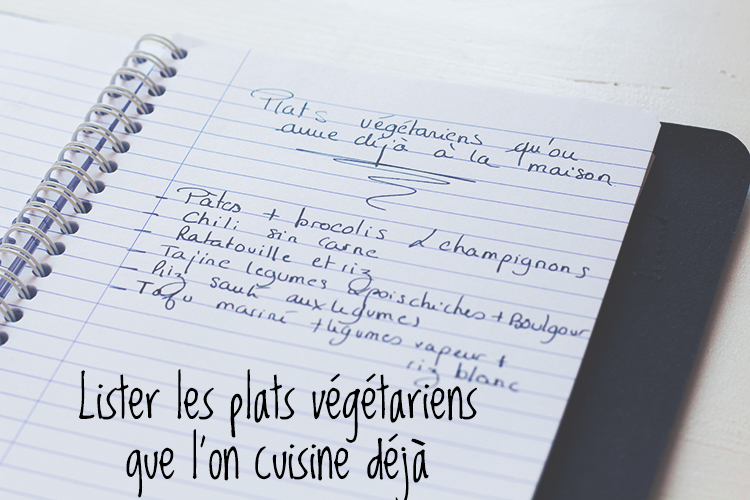 Plats végétariens qu'on
aime déjà à la maison
- Pâtes + brocolis & champignons
- Chili sin carne
- Ratatouille et riz
- Tajine légumes & poischiches + Boulgour
- Riz sauté aux légumes
- Tofu mariné + légumes vapeur +
riz blanc
Lister les plats végétariens
que l'on cuisine déjà